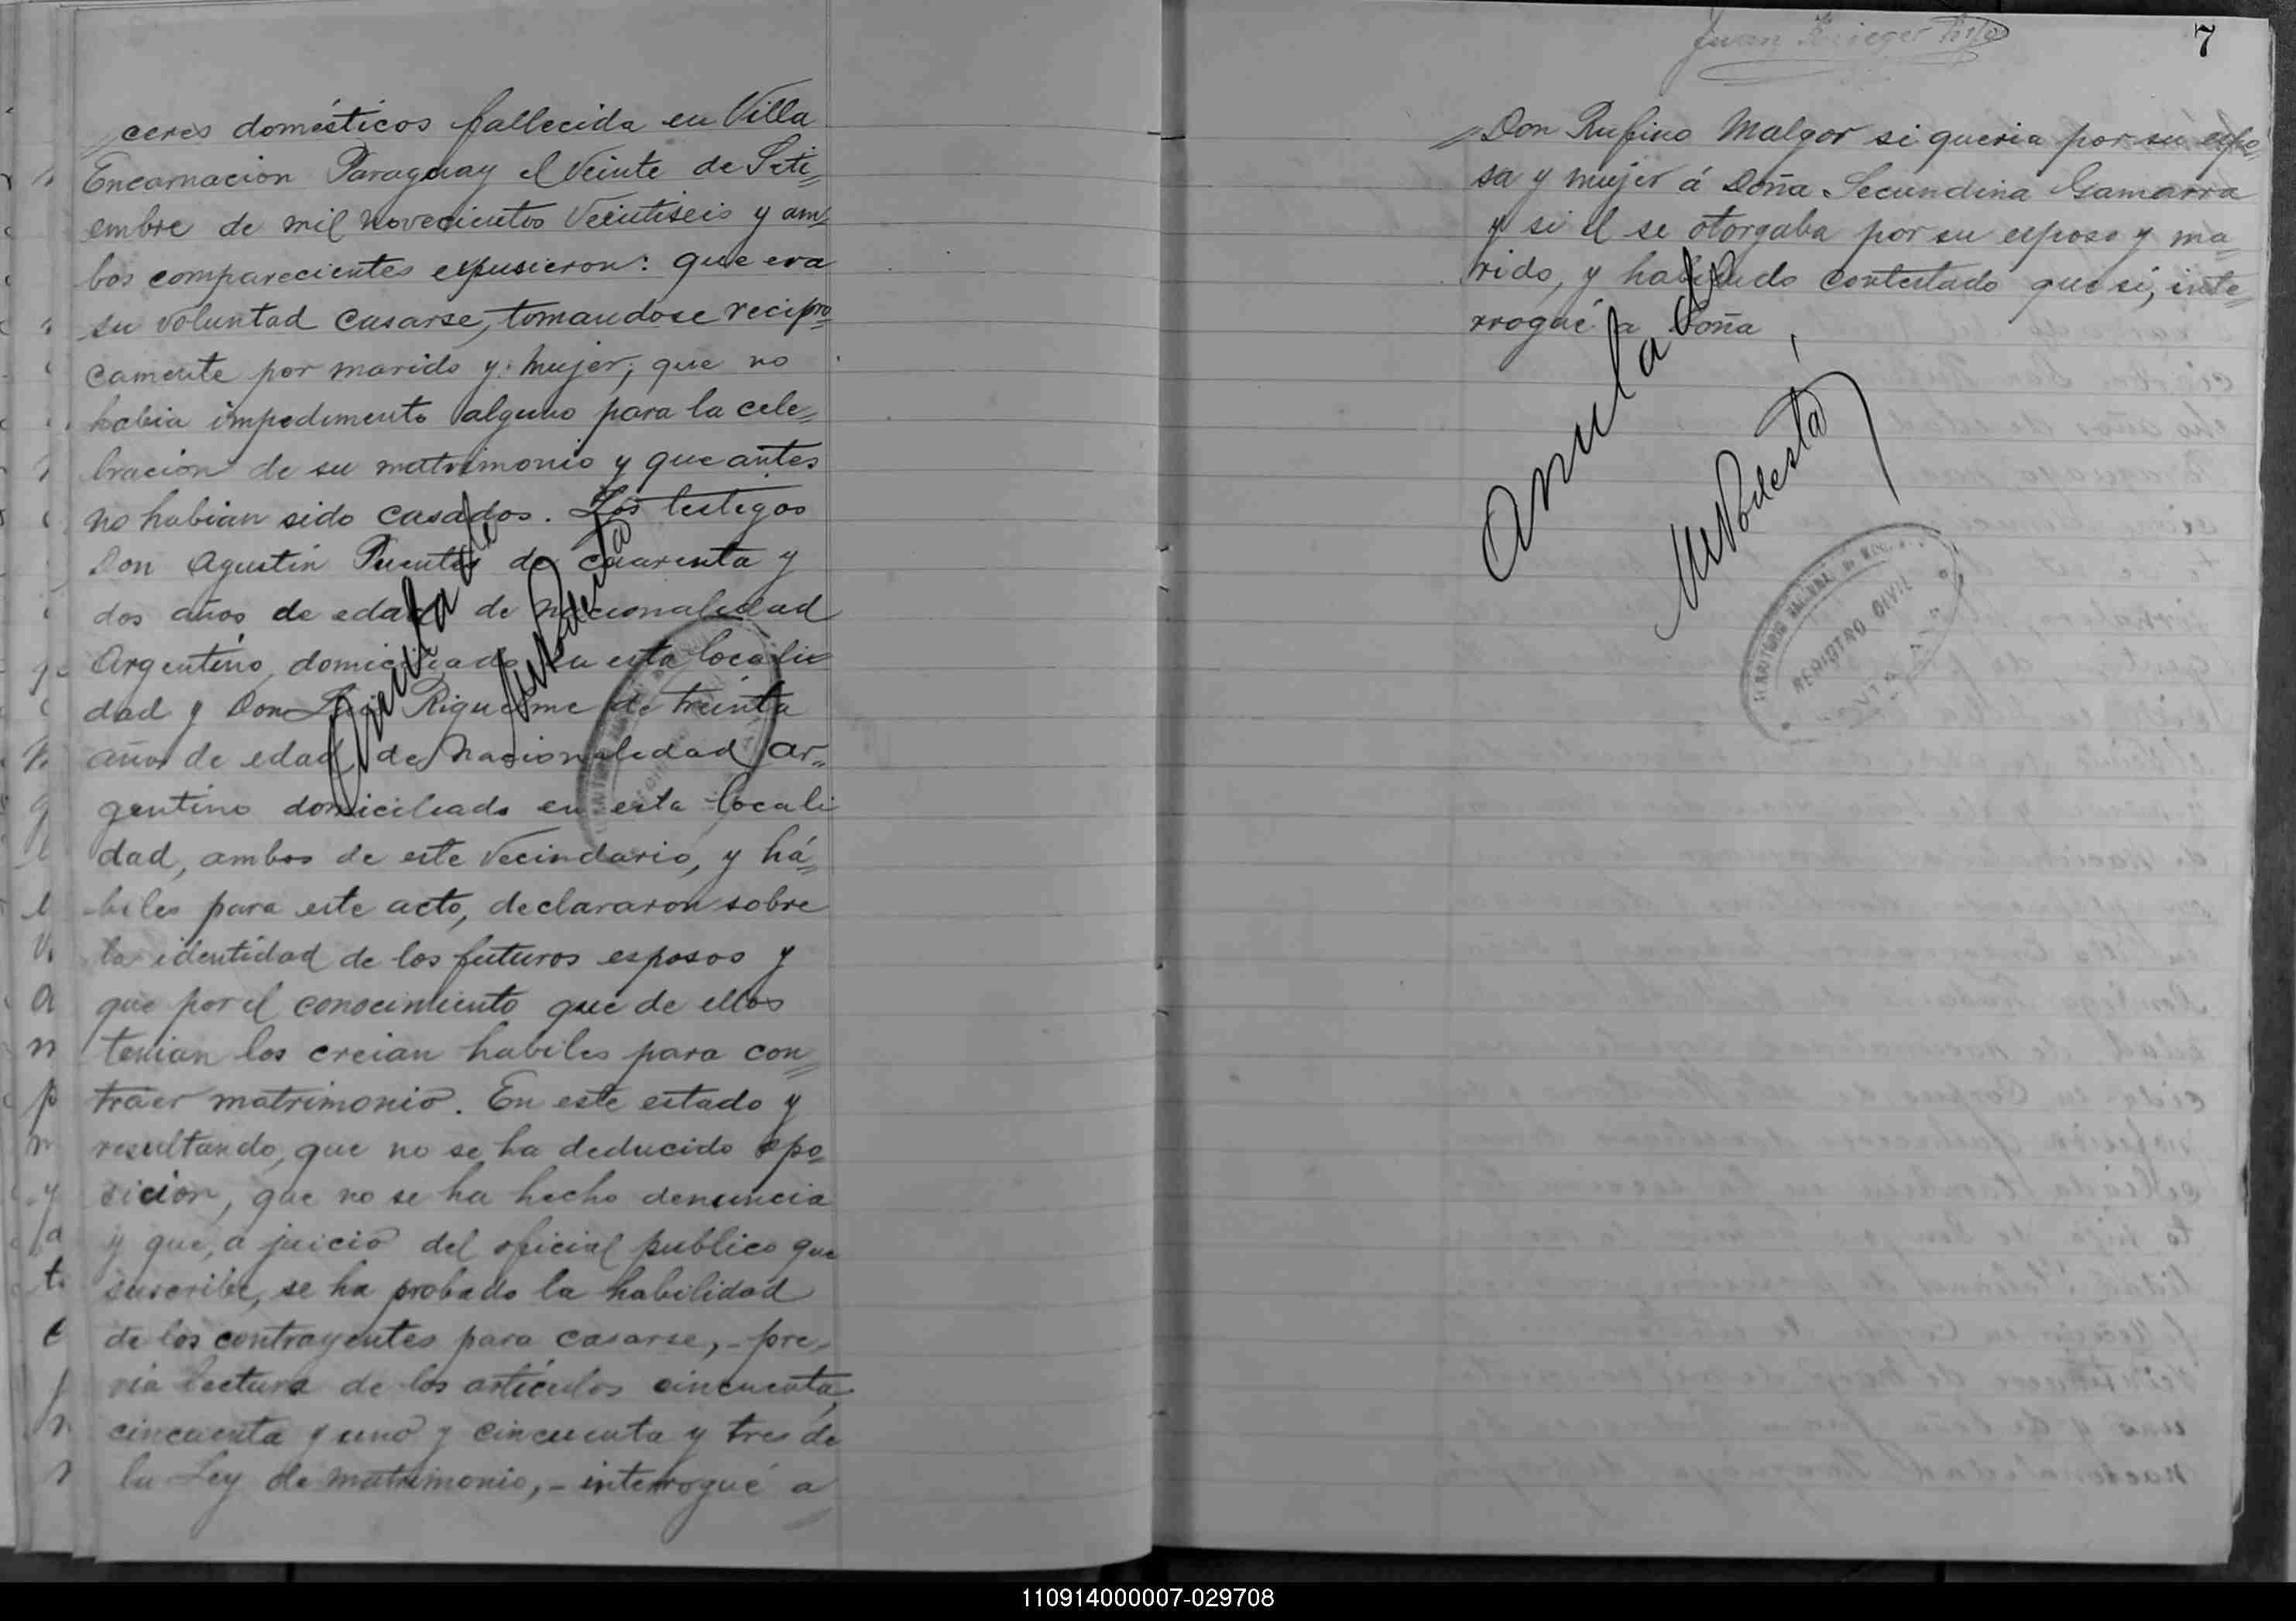 ceres domésticos fallecida en Villa
Encarnacion Paraguay el Veinte de Seti=
embre de mil novecientos Veintiseis y am=
bos comparecientes expusieron: que era
su voluntad casarse, tomandose recipro=
camente por marido y mujer; que no
habia impedimento alguno para la cele=
bracion de su matrimonio y que antes
no habian sido casados. Los testigos
Don Agustin Puentes de cuarenta y
dos años de edad de nacionalidad
Argentino, domiciliado en esta locali=
dad y Don Luis Riquelme de treinta
años de edad, de nacionaledad ar=
gentino domiciliado en esta locali
dad, ambos de este Vecindario, y há=
biles para este acto, declararon sobre
la identidad de los futuros esposos y
que por el conocimiento que de ellos
tenian los creian habiles para con=
traer matrimonio. En este estado y
resultando, que no se ha deducido opo=
sicion, que no se ha hecho denuncia
y que, a juicio del oficial publico que
suscribe, se ha probado la habilidad
de los contrayentes para casarse, - pre=
via lectura de los artículos cincuenta,
cincuenta y uno y cincuenta y tres de
la Ley de matrimonio, - interrogué a
Anulado
Juan Krieger hijo
7
Don Rufino Malgor si queria por su espo=
sa y mujer á Doña Secundina Gamarra
y si el se otorgaba por su esposo y ma=
rido, y habiendo contestado que si, inte=
rrogué a Doña
Anulado
REGISTRO CIVIL
110914000007-029708